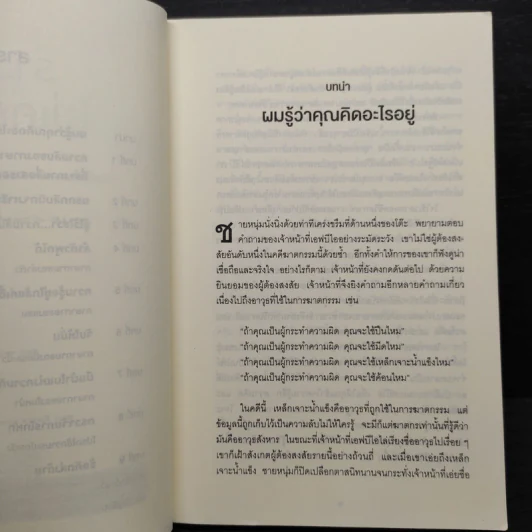 บทนำ
ผมรู้ว่าคุณคิดอะไรอยู่
ชายหนุ่มนั่งนิ่งด้วยท่าทีเคร่งขรึมที่ด้านหนึ่งของโต๊ะ พยายามตอบ
คำถามของเจ้าหน้าที่เอฟบีไออย่างระมัดระวัง เขาไม่ใช่ผู้ต้องสง-
สัยอันดับหนึ่งในคดีฆาตกรรมนี้ด้วยซ้ำ อีกทั้งคำให้การของเขาก็ฟังดูน่า
เชื่อถือและจริงใจ อย่างไรก็ตาม เจ้าหน้าที่ยังคงกดดันต่อไป ด้วยความ
ยินยอมของผู้ต้องสงสัย เจ้าหน้าที่จึงยิงคำถามอีกหลายคำถามเกี่ยว
เนื่องไปถึงอาวุธที่ใช้ในการฆาตกรรม เช่น
"ถ้าคุณเป็นผู้กระทำความผิด คุณจะใช้ปืนไหม"
"ถ้าคุณเป็นผู้กระทำความผิด คุณจะใช้มีดไหม"
"ถ้าคุณเป็นผู้กระทำความผิด คุณจะใช้เหล็กเจาะน้ำแข็งไหม"
"ถ้าคุณเป็นผู้กระทำความผิด คุณจะใช้ค้อนไหม"
ในคดีนี้ เหล็กเจาะน้ำแข็งคืออาวุธที่ถูกใช้ในการฆาตกรรม แต่
ข้อมูลนี้ถูกเก็บไว้เป็นความลับไม่ให้ใครรู้ จะมีก็แต่ฆาตกรเท่านั้นที่รู้ดีว่า
มันคืออาวุธสังหาร ในขณะที่เจ้าหน้าที่เอฟบีไอไล่เรียงชื่ออาวุธไปเรื่อย ๆ
เขาก็เฝ้าสังเกตผู้ต้องสงสัยรายนี้อย่างถ้วนถี่ และเมื่อเขาเอ่ยถึงเหล็ก
เจาะน้ำแข็ง ชายหนุ่มก็ปิดเปลือกตาสนิทนานจนกระทั่งเจ้าหน้าที่เอ่ยชื่อ